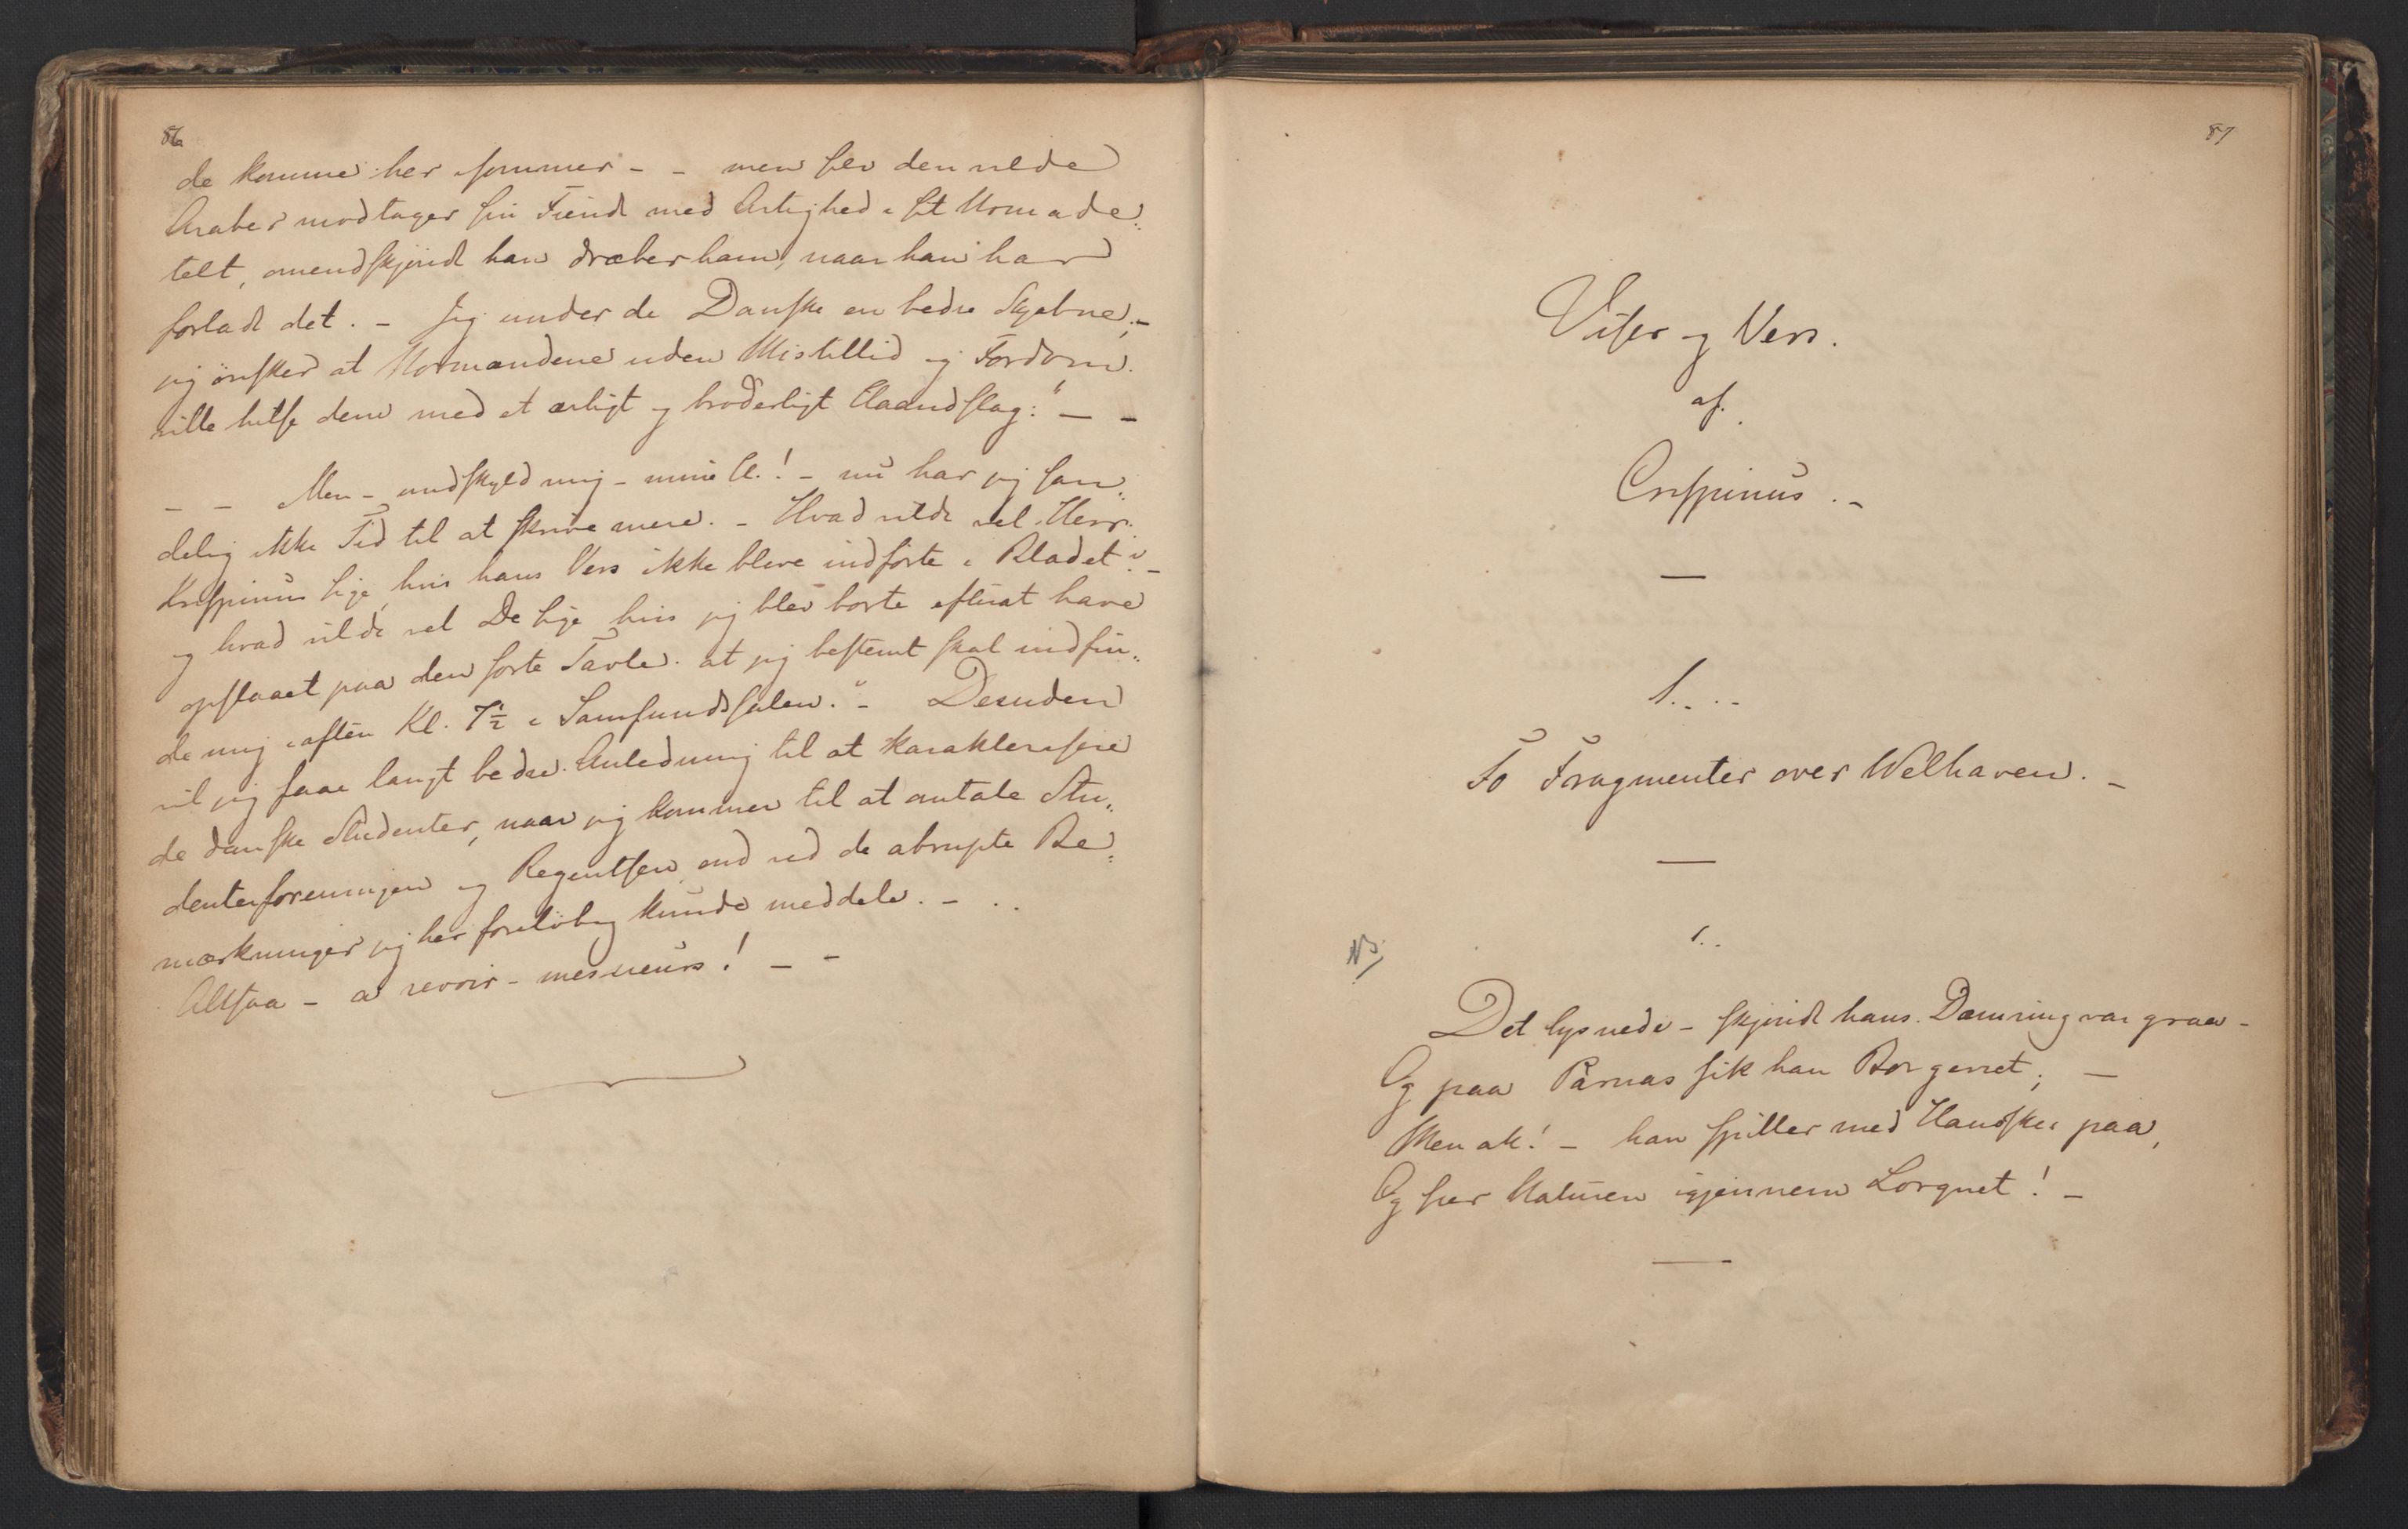 86
de komme her isommer - - men selv den vilde
Araber modtager sin Fiende med Artighed i sit Nomade:
telt, omendskjøndt han dræber ham, naar han har
forladt det. - Jeg under de Danske en bedre Skjebne; -
jeg önsker at Normændene uden Mistillid og Fordom
ville hilse dem med et ærligt og broderligt Haandslag:" - -
- - Men - undskyld mig - mine H.! - nu har jeg san:
delig ikke Tid til at skrive mere. - Hvad vilde vel Herr
Krispinus sige, hvis hans Vers ikke bleve indförte i Bladet? -
og hvad vilde vel De sige hvis jeg blev borte efterat have
opslaaet paa den sorte Tavle "at jeg bestemt skal indfin:
de mig iaften Kl. 7½ i Samfundssalen." - Desuden
vil jeg faae langt bedre Anledning til at karakterisere
de danske Studenter, naar jeg kommer til at omtale Stu:
denterforeningen og Regentsen, end ved de abrupte Be:
mærkninger jeg her forelöbig kunde meddele. - ..
Altsaa - a revoir - messieurs! - -
87
Viser og Vers.
af.
Crispinus. -
1. ..
To Fragmenter over Welhaven. -
1. .
NB
Det lysnede - skjöndt hans Dæmring var graa -
Og paa Parnas fik han Borgerret; -
Men ak! - han spiller med Handsker paa,
Og seer Naturen igjennem Lorgnet! -